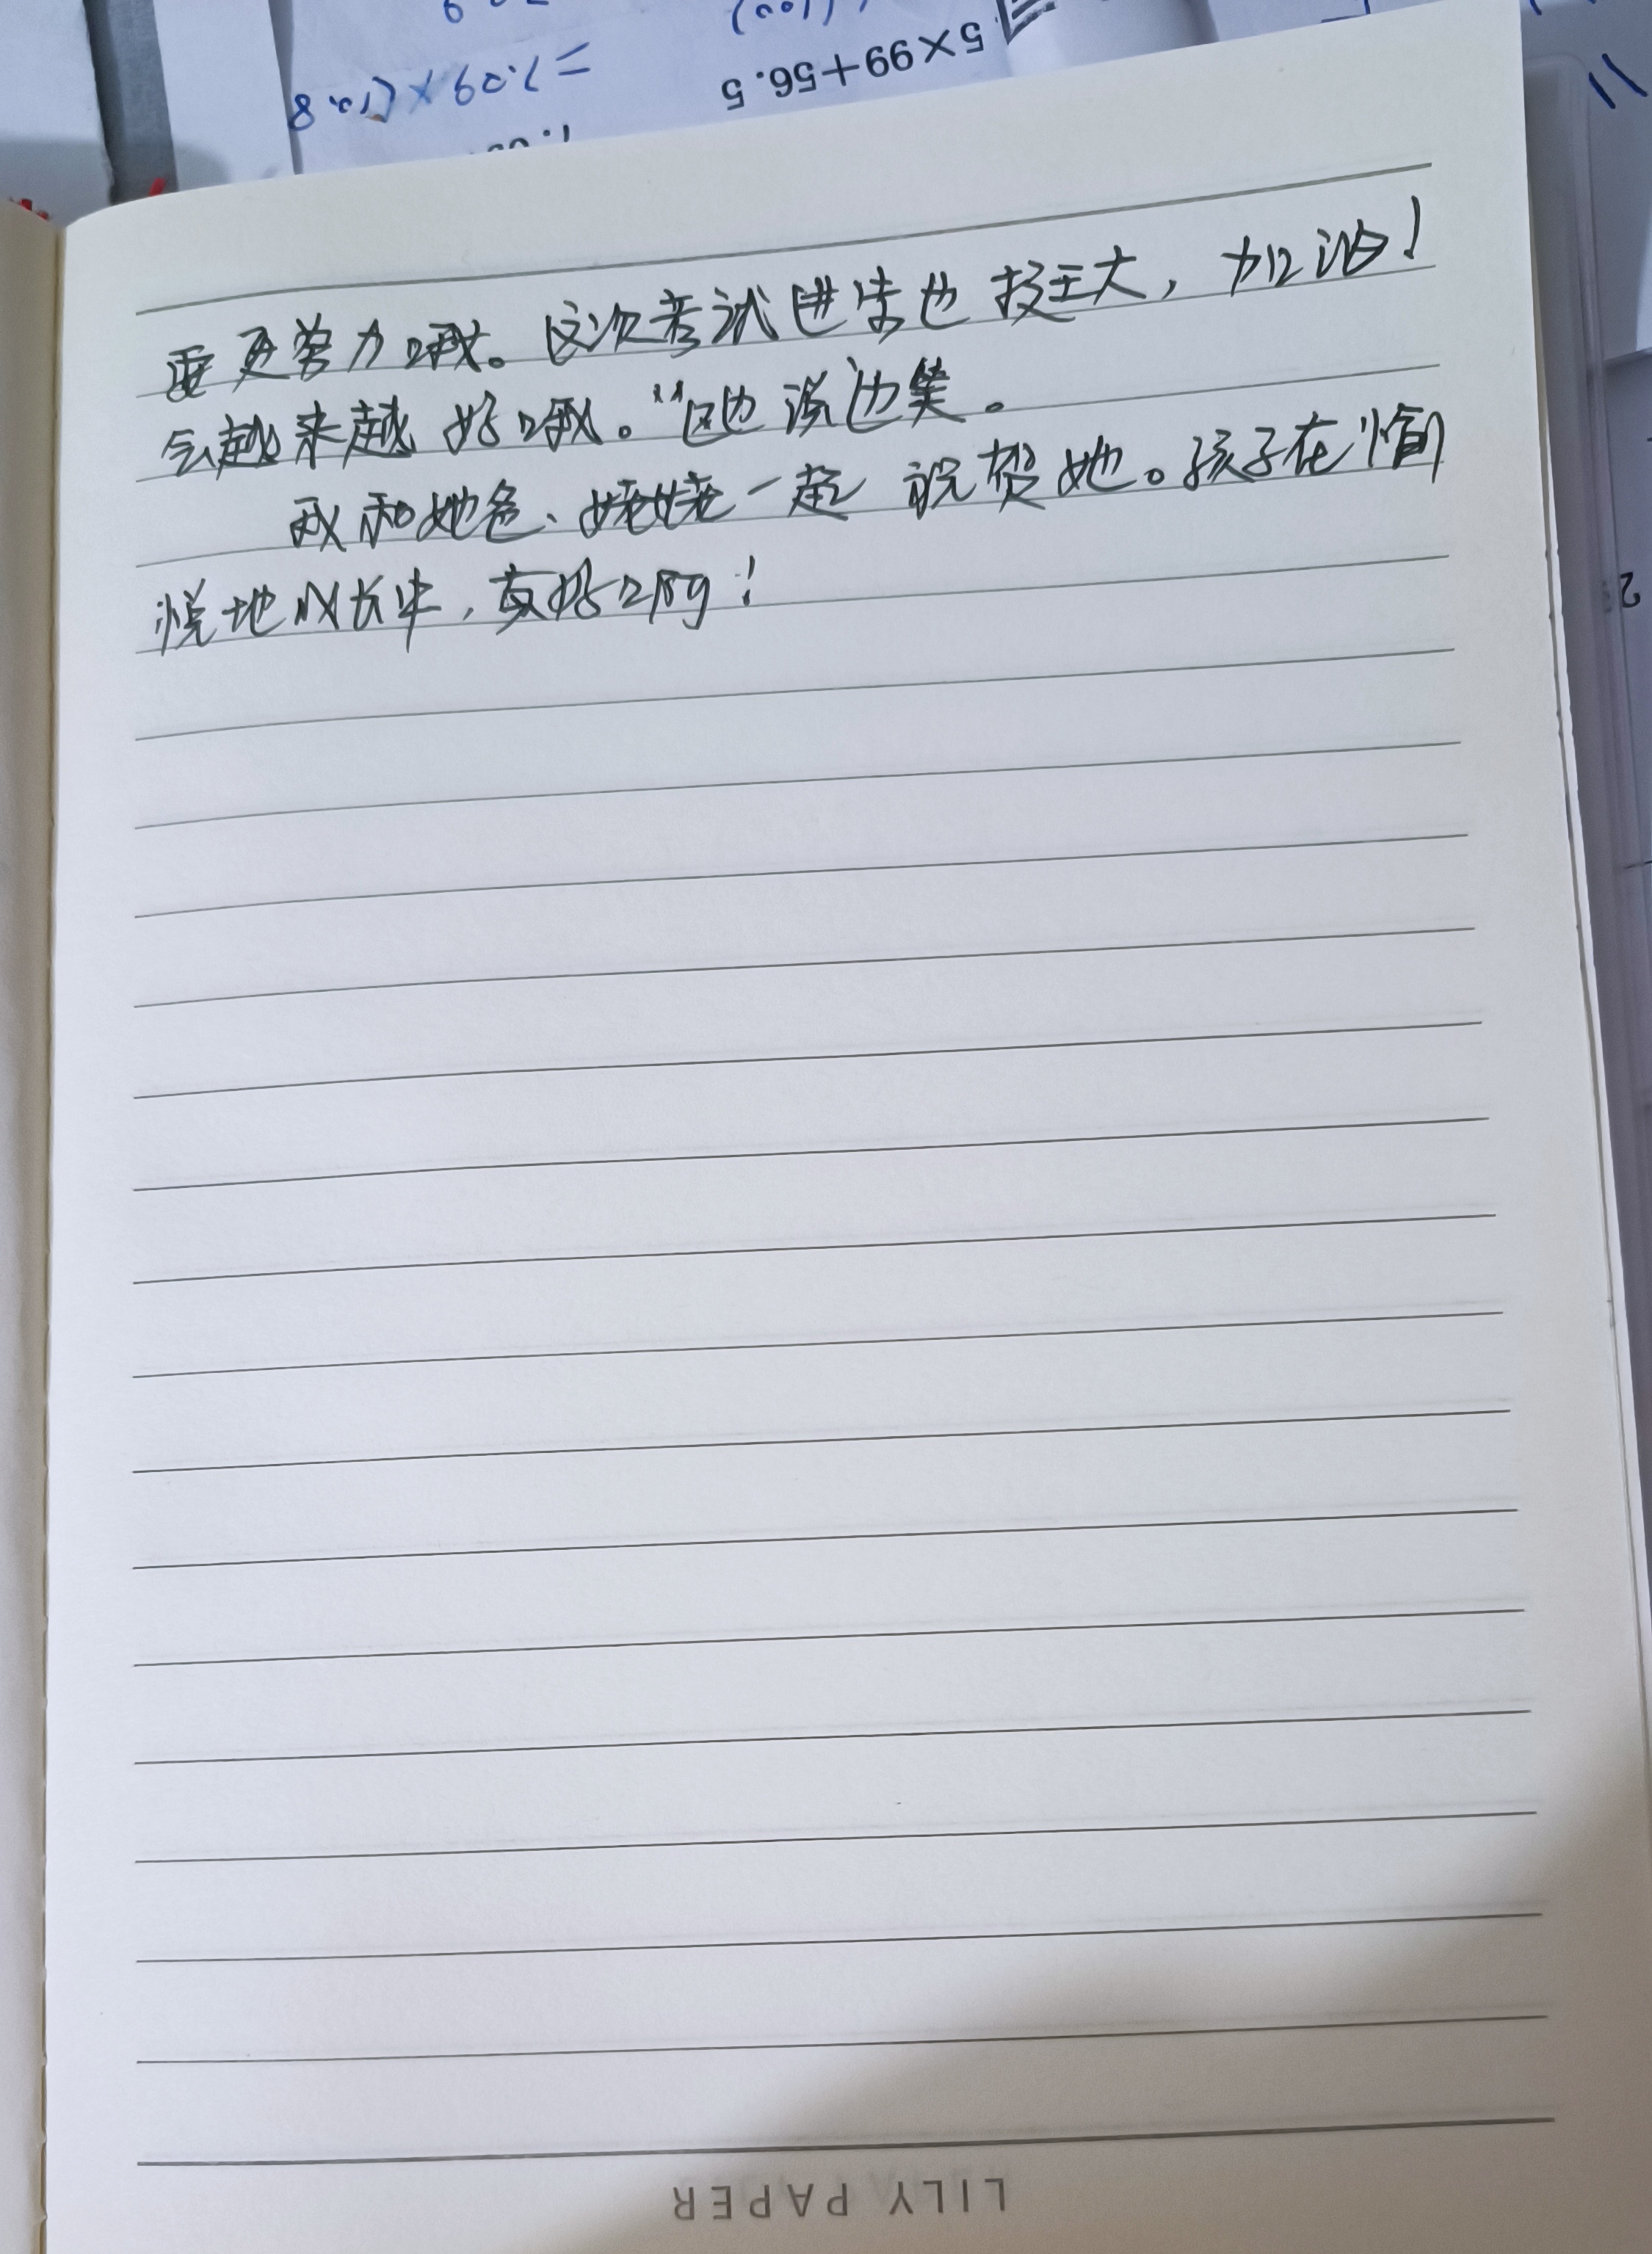 =7.09×(10.8
5×99+56.5
要更努力哦。这次考试进步也挺大，加油！
会越来越好哦。"她边说边笑。
我和她爸、姥姥一起祝贺她。孩子在愉
悦地成长中，真好啊！
LILY PAPER